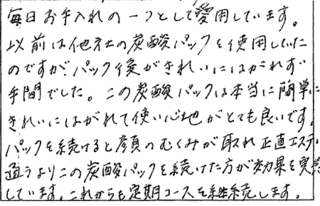 毎日お手入れの一つとして愛用しています。
以前は他社の炭酸パックを使用していた
のですが、パック後がきれいにはがれず
手間でした。この炭酸パックは本当に簡単に
きれいにはがれて使い心地がとても良いです。
パックを続けると顔のむくみが取れ正直エステ
通うよりこの炭酸パックを続けた方が効果を実感
しています。これからも定期コースを継続します。